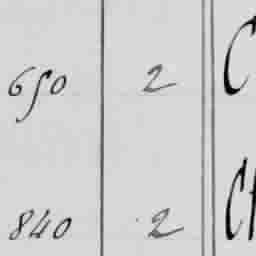 650 2 C
840 2 C